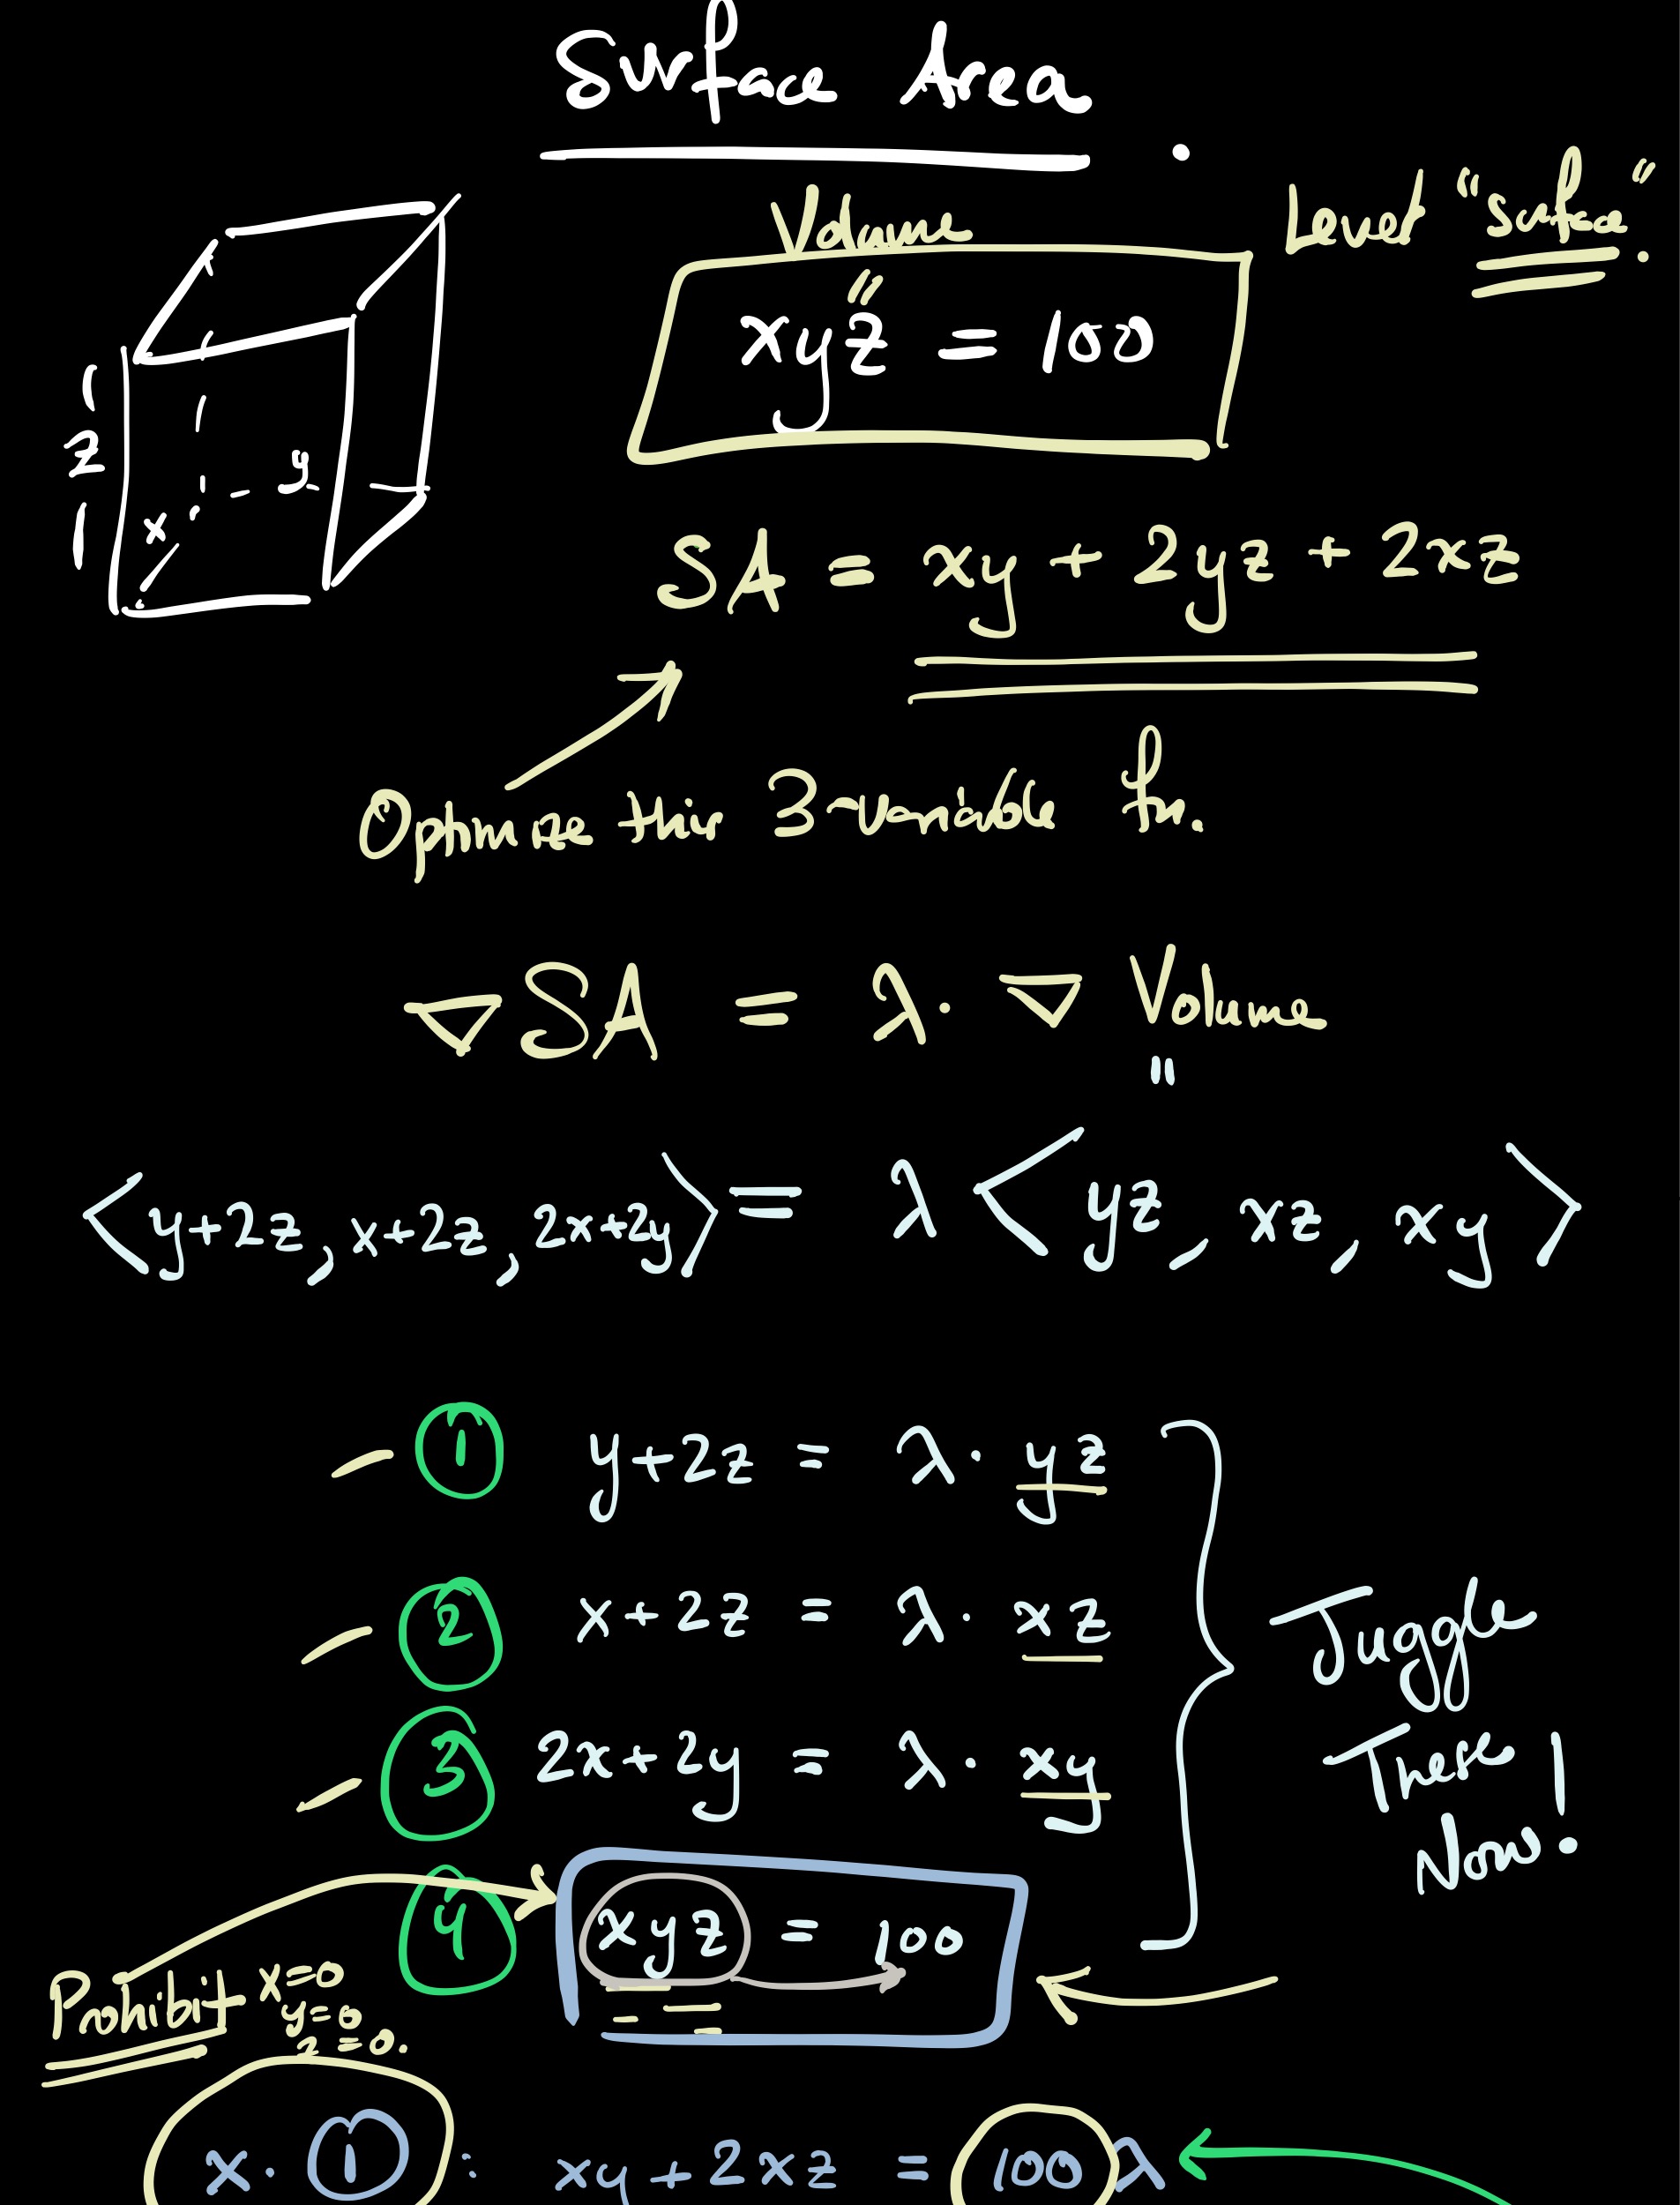 Surface Area
Level "surface".
Volume
"
xyz = 100
z
y
x
SA = xy + 2yz + 2xz
Optimize this 3-variable fn.
∇SA = λ · ∇ Volume
"
<y+2z, x+2z, 2x+2y> = λ <yz, xz, xy>
① y+2z = λ · yz
② x+2z = λ · xz
③ 2x+2y = λ · xy
④ xyz = 100
Juggle
These
Now!
Prohibit x=0
y=0
z=0.
x · ① : xy + 2xz = 100λ